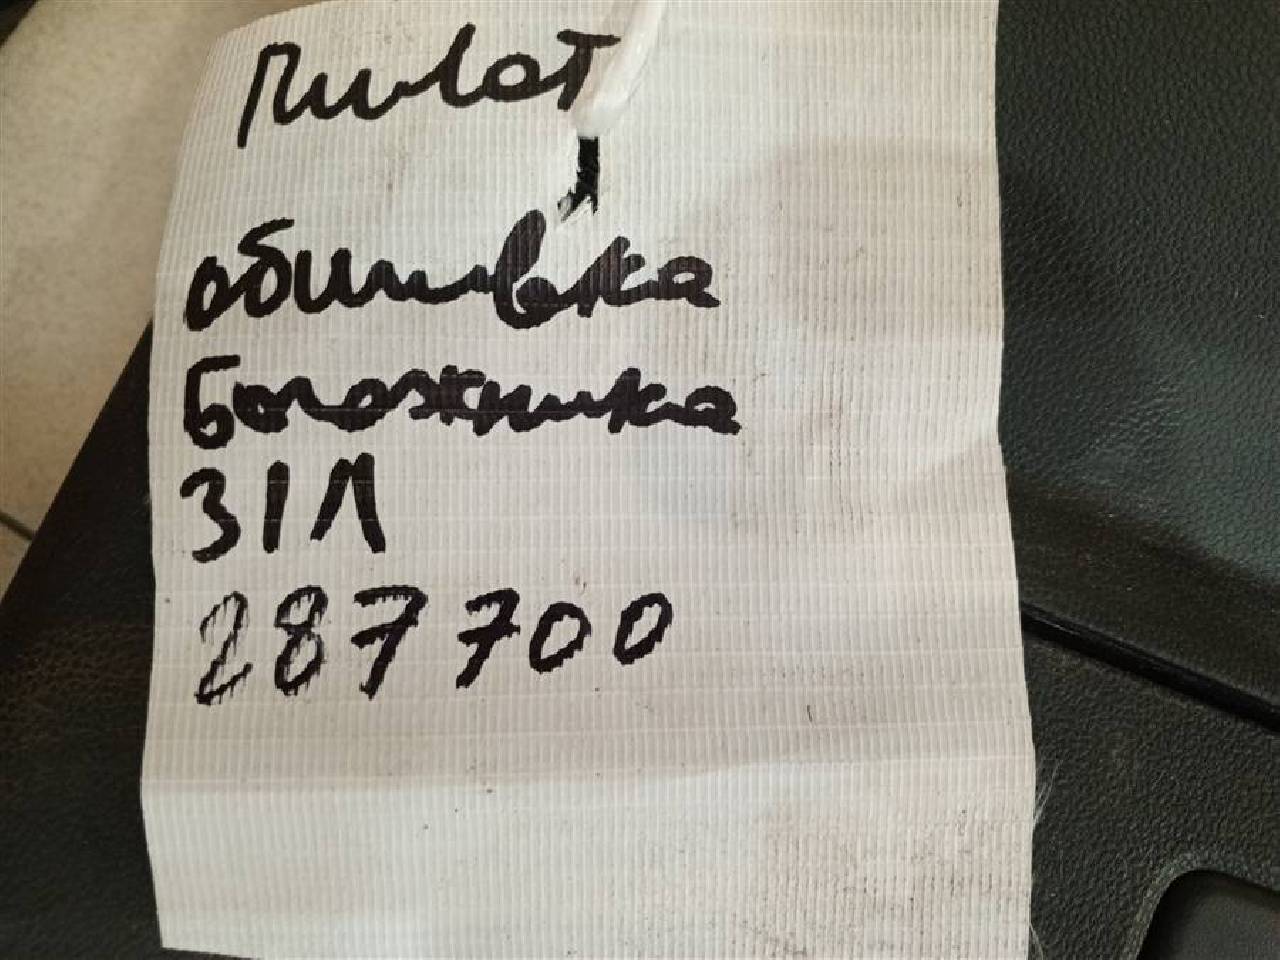 Пилот
обшивка
багажника
31Л
287700